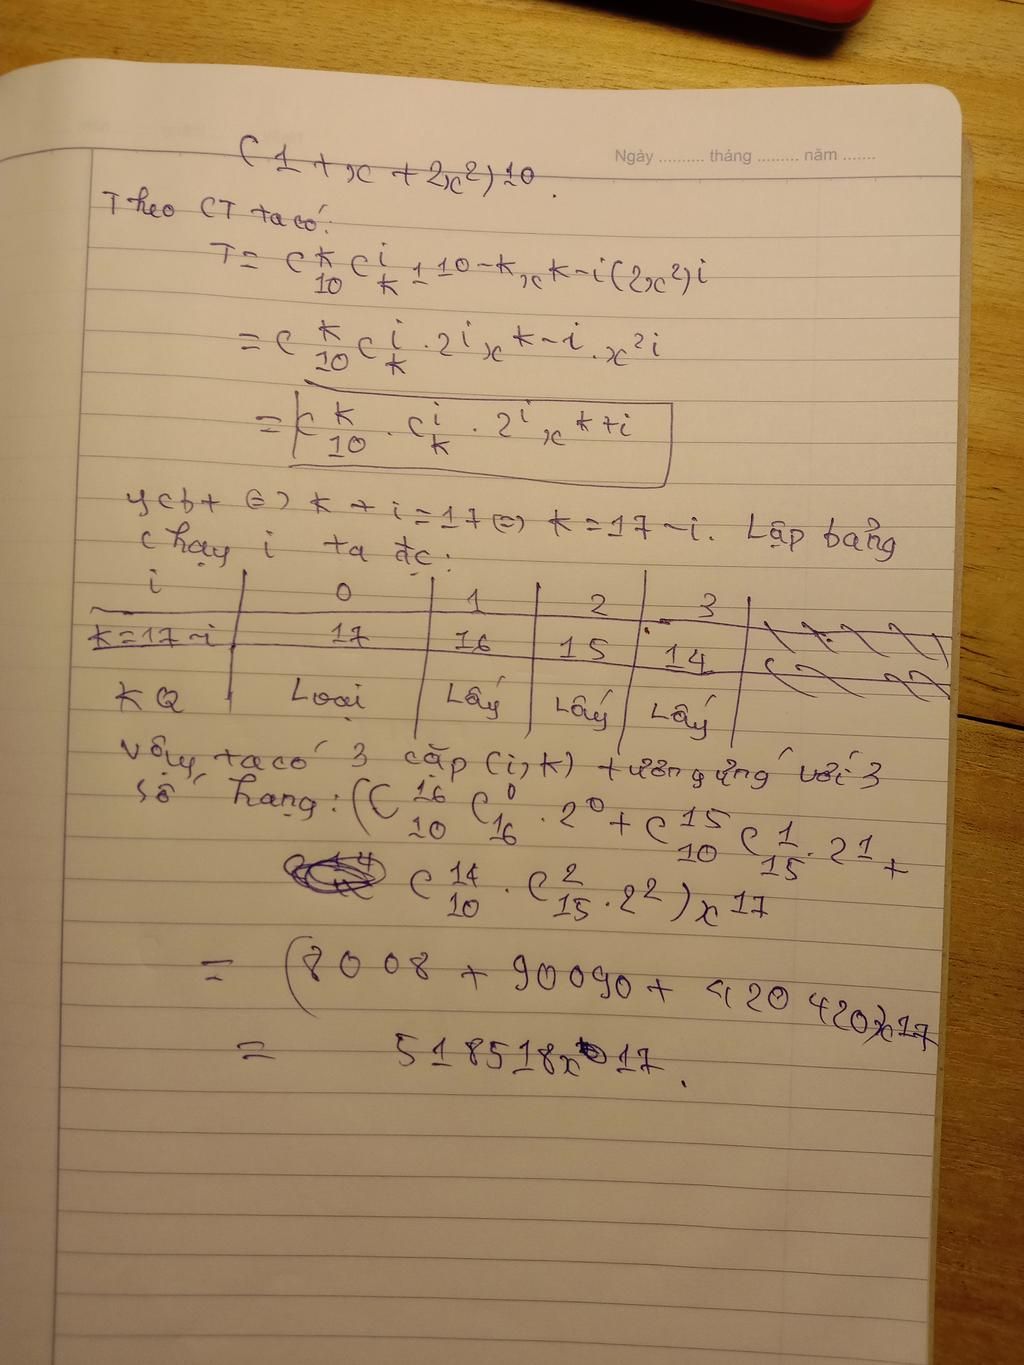 Ngày .......... tháng ......... năm .......
(1 + x + 2x²)10.
Theo CT ta có:
T = C k 10 C i k 1 10-k x k-i (2x²)i
= C k 10 C i k . 2 i x k-i . x 2i
= C k 10 . C i k . 2 i x k+i
ycbt <=> k + i = 17 <=> k = 17 - i. Lập bảng
chạy i ta đc:
i | 0 | 1 | 2 | 3
k = 17 - i | 17 | 16 | 15 | 14
KQ | Loại | Lấy | Lấy | Lấy
Vậy ta có 3 cặp (i, k) tương ứng với 3
số hạng: (C 16 10 C 0 16 . 2 0 + C 15 10 C 1 15 . 2 1 +
C 14 10 . C 2 15 . 2 2) x 17
= (8008 + 90090 + 420420)x17
= 518518x 17.